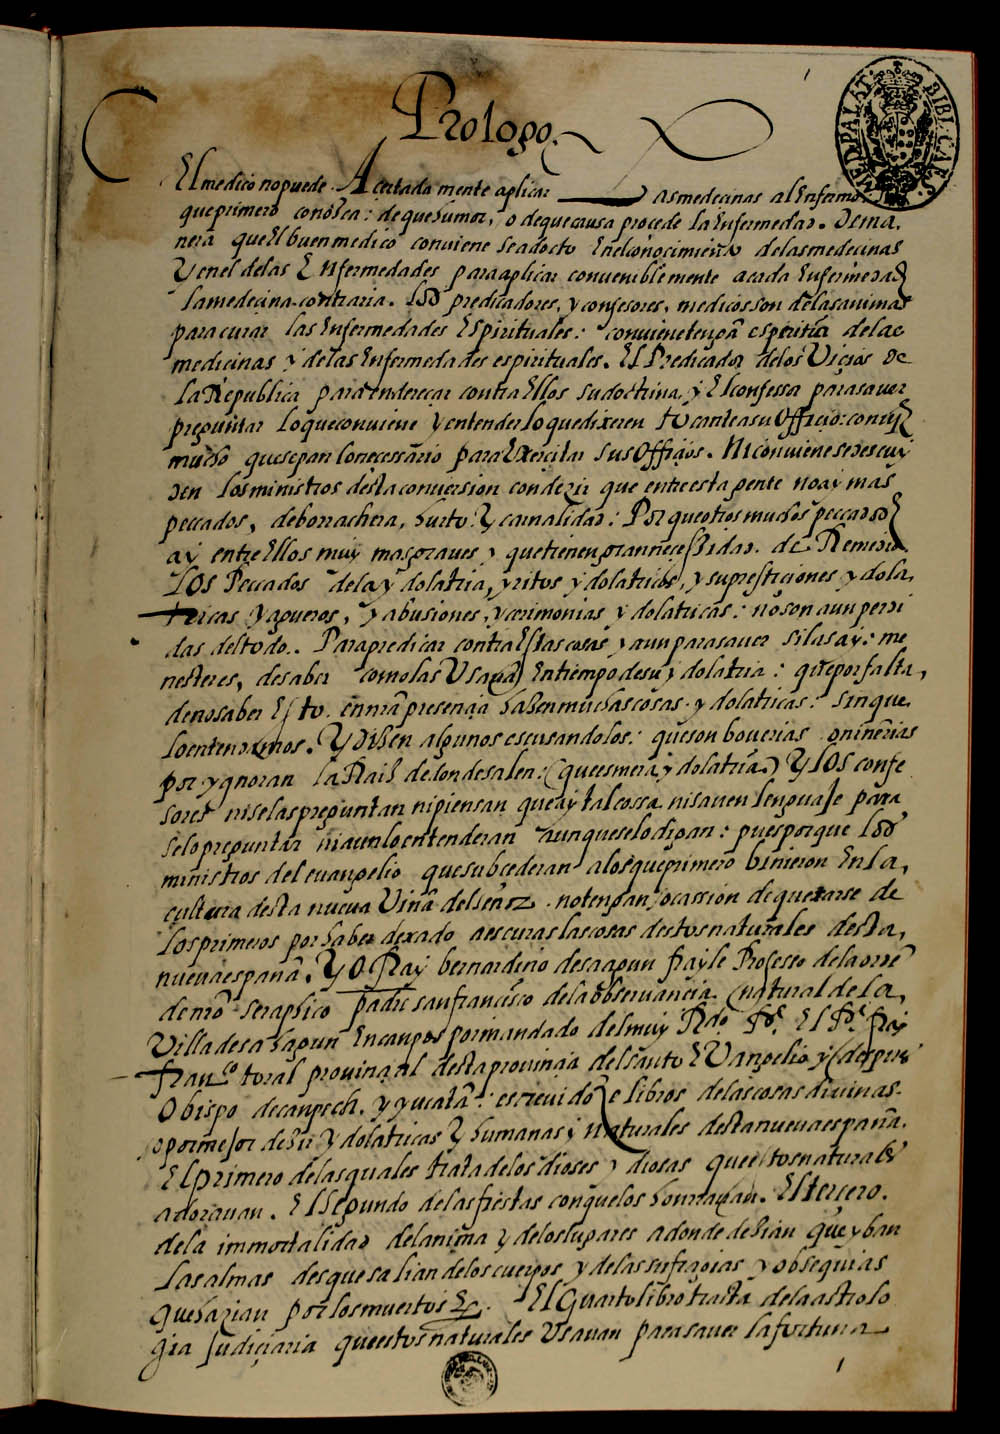 Prologo.
El medico no puede Acertadamente aplicar las medecinas al Enfermo
que primero conosca: de que humor, o de que causa procede la Enfermedad. De ma,
nera que El buen medico conviene sea docto En el conocimiento de las medecinas
Y en el de las Enfermedades para aplicar conveniblemente a cada Enfermedad
la medecina contraria. Los predicadores, y confesores, medicos son de las animas
para curar las Enfermedades Espirituales: conviene tengā espitia de las
medicinas y de las Enfermedades espirituales. El Predicador de los Vicios de
la Republica para enderecar contra Ellos su doctrina, y El confessor para saver
preguntar lo que conviene y entender lo que dixeren tocante a su Officio: conviē
mucho que sepan lo necessario para Exercitar sus Officios. Ni conviene se descuy
den los ministros desta conversion con dezir que entre esta gente no ay mas
peccados, de borrachera, hurto: Y carnalidad: Por que otros muchos peccados
ay entre Ellos muy mas graves y que tienen gran necessidad de Remedio
Los Peccados de la ydolatria, y ritos ydolatricos, y supresticiones ydola,
tricas y agueros, y abusiones, y cerimonias ydolatricas: no son aun perdi
das del todo.. Para predicar contra Estas cosas y aun para saver si las ay: me
nester es, de saber como las Usavā En tiempo de su ydolatria: que por falta,
de no saber Esto. en nrā presencia hazen muchas cosas ydolatricas: sin que
lo entendamos. Y dizen algunos escusandolos: que son boverias o niñerias
por ygnorar la Raiz de donde salen: (que es mera ydolatria.) Y los confe
sores ni se las preguntan ni piensan que ay tal cossa ni saven lenguaje para
selo preguntar ni aun lo entenderan aunque selo digan: pues porque los
ministros del evangelio que subcederan a los que primero binieron En la,
cultura desta nueva Viña del señor no tengan ocassion de quexarse de
los primeros por haber dexado a escuras las cosas destos naturales desta,
nueva españa. Yo Fray bernardino de saagun frayle Professo de la ordē
de nrō seraphico padre san francisco de la observancia (natural de la,
Villa de sahagun En campos por mandado del muy Rdo. Pe. El Pe. fray
Franco. toral provincial desta provincia del santo EVangelio y (despues
Obispo de canpech. y yucatā: escrevi doze libros de las cosas divinas.
o por mejor dezir Ydolatricas Y humanas y naturales desta nueva españa.
El primero de las quales trata de los dioses y diosas que estos naturales
adoravan. El segundo de las fiestas con que los honrravan. El tercero.
de la immortalidad del anima y de los lugares a donde dezian que yban
las almas desque salian de los cuerpos y de las sufragias y obsequias
que hazian por los muertos &c. El Quarto libro tracta de la astrolo
gia Judiciaria que estos naturales Usavan para saver la fortuna
1